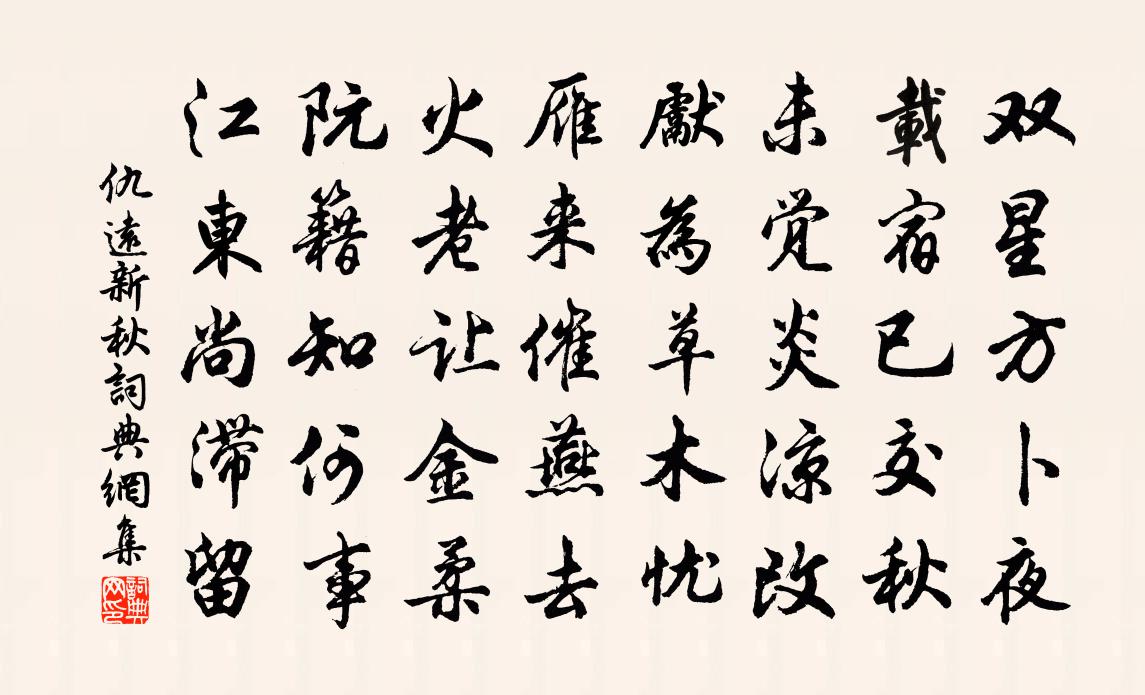 双星方卜夜
載宿已交秋
未觉炎凉改
獻為草木忧
雁来催燕去
火老让金柔
阮籍知何事
江東尚滞留
仇遠新秋詞典網集
詞典网印